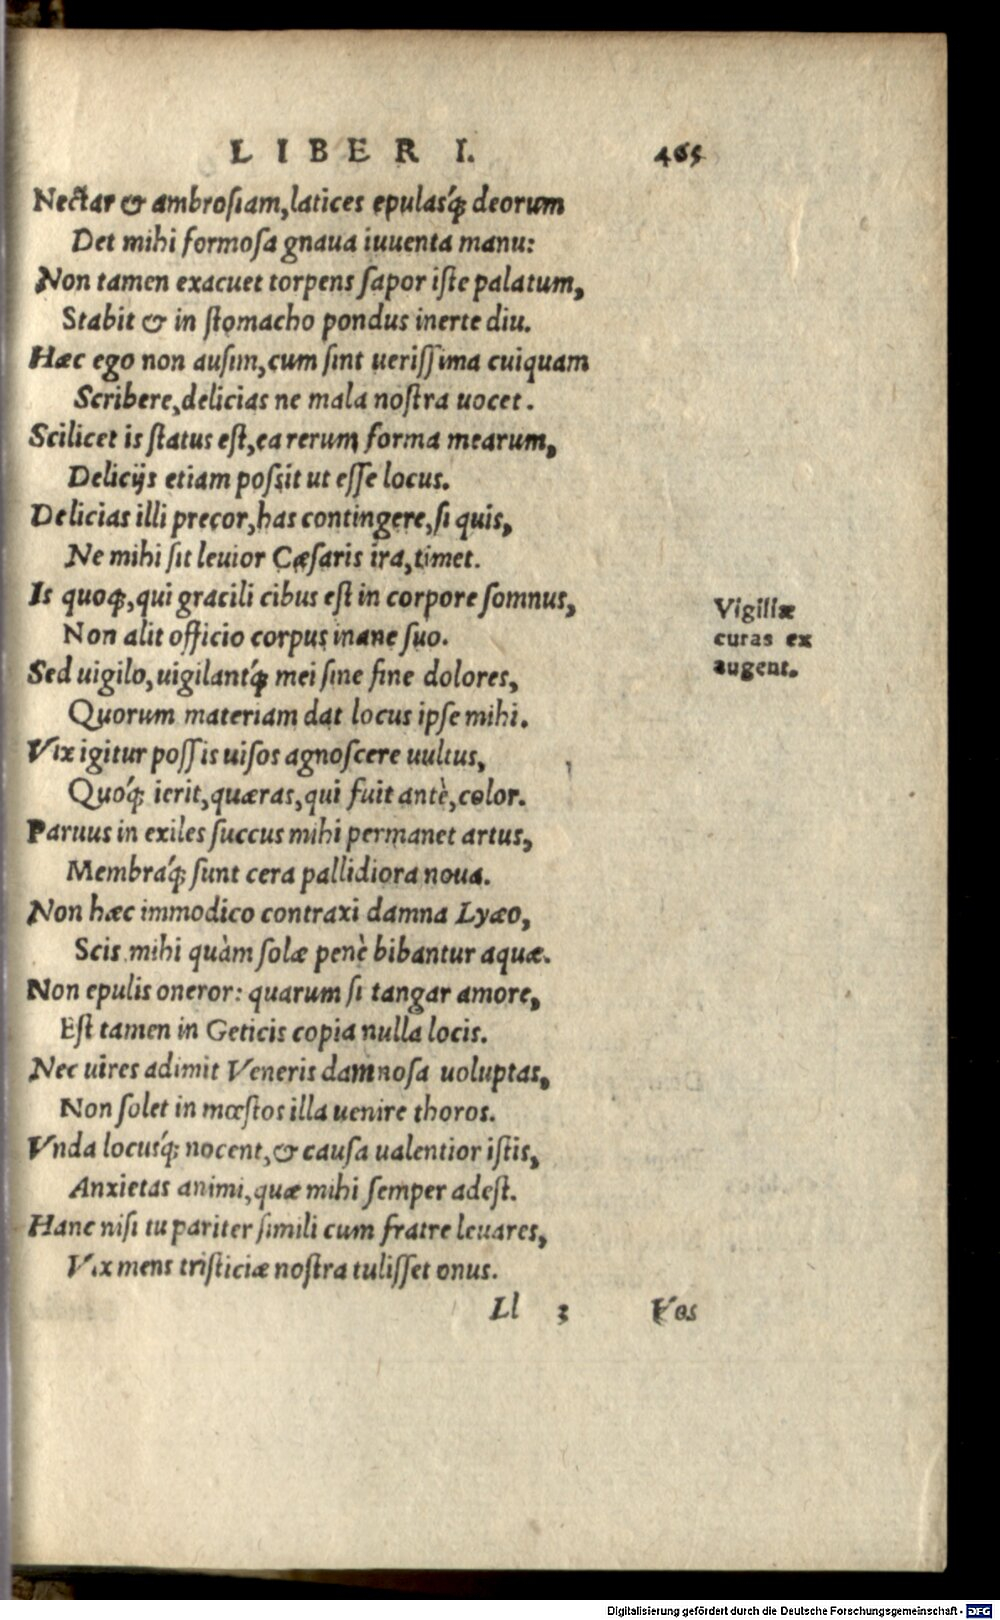 LIBER I. 465
Nectar & ambrosiam, latices epulasq́; deorum
Det mihi formosa gnaua iuuenta manu:
Non tamen exacuet torpens sapor iste palatum,
Stabit & in stomacho pondus inerte diu.
Hæc ego non ausim, cum sint uerissima cuiquam
Scribere, delicias ne mala nostra uocet.
Scilicet is status est, ea rerum forma mearum,
Delicijs etiam possit ut esse locus.
Delicias illi precor, has contingere, si quis,
Ne mihi sit leuior Cæsaris ira, timet.
Is quoq;, qui gracili cibus est in corpore somnus,
Non alit officio corpus inane suo.
Sed uigilo, uigilantq́; mei sine fine dolores,
Quorum materiam dat locus ipse mihi.
Vix igitur possis uisos agnoscere uultus,
Quóq; ierit, quæras, qui fuit antè, color.
Paruus in exiles succus mihi permanet artus,
Membraq́; sunt cera pallidiora noua.
Non hæc immodico contraxi damna Lyæo,
Scis mihi quàm solæ penè bibantur aquæ.
Non epulis oneror: quarum si tangar amore,
Est tamen in Geticis copia nulla locis.
Nec uires adimit Veneris damnosa uoluptas,
Non solet in mœstos illa uenire thoros.
Vnda locusq́; nocent, & causa ualentior istis,
Anxietas animi, quæ mihi semper adest.
Hanc nisi tu pariter simili cum fratre leuares,
Vix mens tristiciæ nostra tulisset onus.
Ll 3 Vos
Vigiliæ
curas ex
augent.
Digitalisierung gefördert durch die Deutsche Forschungsgemeinschaft - DFG